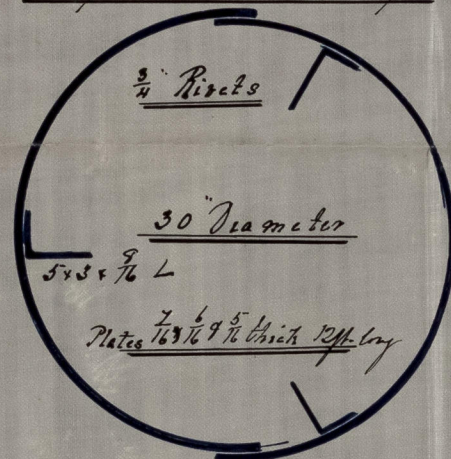 3/4" Rivets
30" Diameter
5 x 3 x 9/16 L
Plates 7/16 & 6/16 & 5/16 thick 12ft long